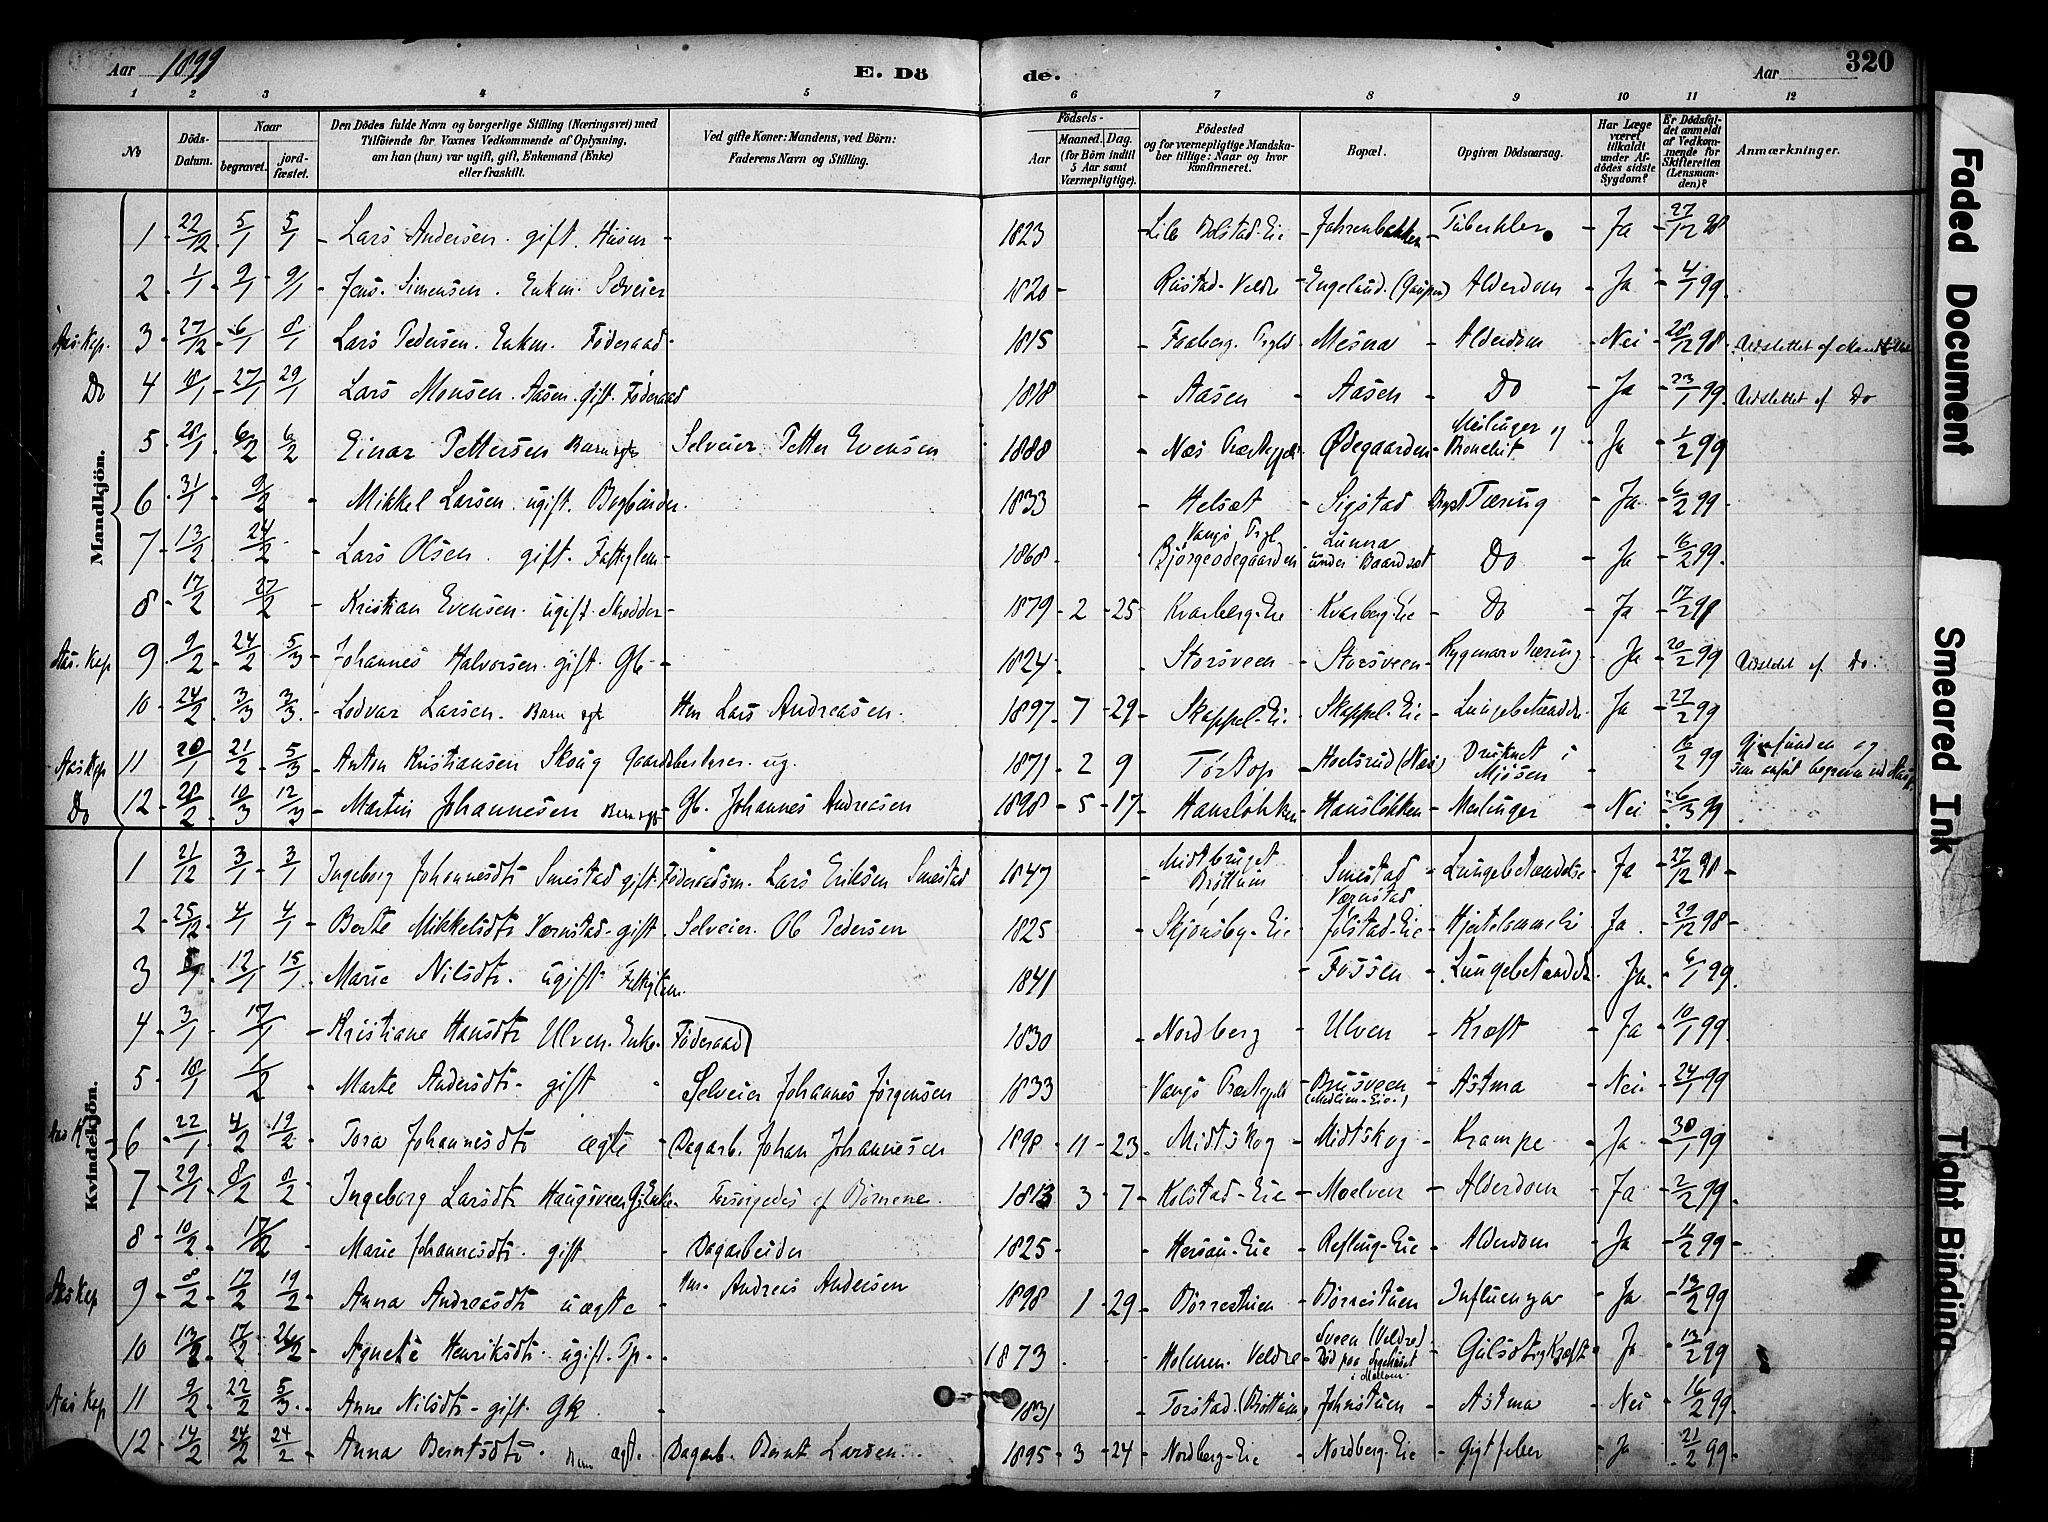 Aar 1899 E. Döde. Aar 320
1 2 3 4 5 6 7 8 9 10 11 12
№ Döds-Datum. Naar begravet. jordfæstet. Den Dödes fulde Navn og borgerlige Stilling (Næringsvei) med Tilföiende for Voxnes Vedkommende af Oplysning, am han (hun) var ugift, gift, Enkemand (Enke) eller fraskilt. Ved gifte Koner: Mandens, ved Börn: Faderens Navn og Stilling. Födsels- Aar Maaned. Dag. (for Börn indtil 5 Aar samt Værnepligtige). Födested og for værnepligtige Mandskaber tillige: Naar og hvor konfirmeret. Bopæl. Opgiven Dödsaarsag. Har Læge været tilkaldt under Afdödes sidste Sygdom? Er Dödsfaldet anmeldt af Vedkommende for Skifteretten (Lensmanden)? Anmærkninger.
Mandkjön.
1 22/12 5/1 5/1 Lars Andersen. gift. Huusm 1823 Lille Bolstad-Eie Tuberkler Ja 27/12 98
2 1/1 9/1 9/1 Jens Simensen. Enkm. Selveier 1820 Rustad-Veldre Engelund. Alderdom Ja 4/1 99
Aas Kap. 3 27/12 6/1 8/1 Lars Pedersen. Enkm. Føderaad 1815 Faaberg. Prgld Mesna Alderdom Nei 28/12 98
Do 4 18/1 27/1 29/1 Lars Monsen. Aasen. gift. Føderaad 1818 Aasen Aasen Do Ja 23/1 99 Udslettet af Do
5 28/1 6/2 6/2 Einar Pettersen Barn ægte Selveier Petter Evensen 1888 Næs Præstegjeld Ødegaarden Meslinger og Bronchit Ja 1/2 99
6 31/1 9/2 Mikkel Larsen. ugift. Bogbinder 1833 Helsæt Sigstad Brysttæring Ja 6/2 99
7 13/2 24/2 Lars Olsen. gift. Fattiglem 1868 Vangs Prgl Bjørgeødegaarden Lunna under Baardset Do Ja 16/2 99
8 17/2 27/2 Kristian Evensen. ugift. Skrædder 1879 2 25 Kvarberg-Eie Kvarberg-Eie Do Ja 17/2 99
Aas. Kap 9 9/2 24/2 5/3 Johannes Halvorsen. gift. Gb 1824 Storsveen Storsveen Rygmarvstæring Ja 20/2 99 Udslettet af Do.
10 24/2 3/3 3/3 Lodvar Larsen. Barn ægte Hm Lars Andreasen. 1897 7 29 Skappel-Eie Skappel-Eie Lungebetændelse Ja 27/2 99
Aas Kap 11 20/1 21/2 5/3 Anton Kristiansen Skoug Gaardbestyrer. ug. 1871 2 9 Tørtop Hoelsrud (Næs) Druknet i Mjøsen 16/2 99 Gjenfunden og
Do 12 28/2 10/3 12/3 Martin Johannesen Barn ægte Gb. Johannes Andreasen 1898 5 17 Hansløkken Hansløkken Meslinger Nei 6/3 99
Kvindekjön.
1 21/12 3/1 3/1 Ingeborg Johannesdtr Smestad gift Føderaadsm. Lars Eriksen Smestad 1847 Midtbruget Brøttum Smestad Lungebetændelse Ja 27/12 98
2 25/12 4/1 4/1 Berte Mikkelsdtr Værnstad gift Selveier. Ole Pedersen 1825 Skjønsby-Eie Værnstad Jølstad-Eie Hjertelammelse Ja. 29/12 98
3 12/1 15/1 Marie Nilsdtr. ugift. Fattiglem. 1841 Fossen Lungebetændelse Ja. 6/1 99
4 3/1 17/1 Kristiane Hansdtr Ulven. Enke. Føderaad 1830 Nordberg Ulven Kræft Ja 10/1 99
5 18/1 1/2 Marte Andersdtr gift Selveier Johannes Jørgensen 1833 Vangs Præstegjeld Brusveen Astma Nei 24/1 99
Aas K 6 22/1 4/2 19/2 Tora Johannesdtr ægte Dagarb. Johan Johannesen 1898 11 23 Midtskog Midtskog Krampe Ja 30/1 99
7 29/1 8/2 8/2 Ingeborg Larsdtr Haugsveen Enke Forsørgedes af Børnene. 1813 3 7 Kolstad-Eie Moelven Alderdom Ja 2/2 99
8 10/2 17/2 Marie Johannesdtr. gift Dagarbeider 1825 Hersau-Eie Refling-Eie Alderdom Ja 11/2 99
Aas Kap 9 8/2 17/2 19/2 Anna Andreasdtr uægte Hm. Andreas Andersen 1898 1 29 Børrestuen Børrestuen Influenza Ja 13/2 99
10 13/2 17/2 26/2 Agnete Henriksdtr. ugift. Tp. 1873 Holmen. Veldre Sveen (Veldre) Død paa Sygehuset Gulsot og Kræft Ja 13/2 99
Aas Kap 11 9/2 22/2 5/3 Anne Nilsdtr gift. Gk 1831 Torstad. (Brøttum) Johnstuen Astma Nei 16/2 99
12 14/2 24/2 24/2 Anna Berntsdtr. Barn ægte. Dagarb. Bernt Larsen 1895 3 24 Nordberg-Eie Nordberg-Eie Gigtfeber Ja 21/2 99
Faded Document
Smeared Ink
Tight Binding